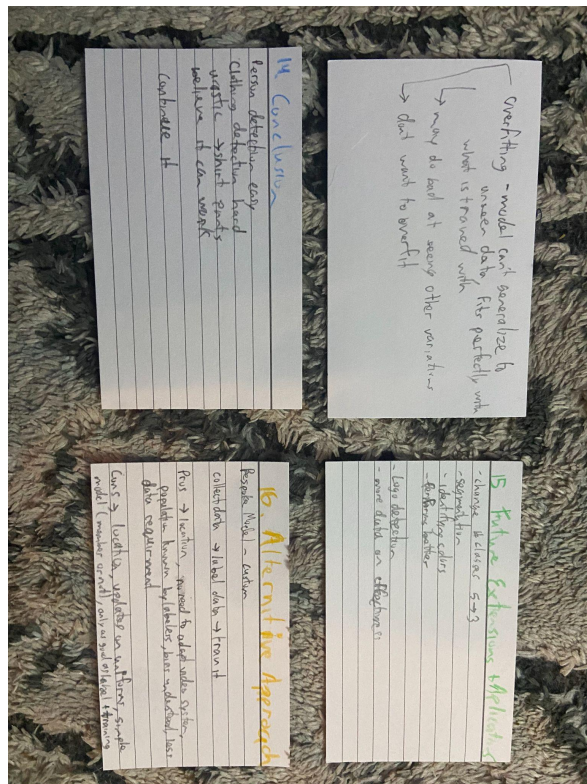 14. Conclusion
Person detection easy
Clothing detection hard
drastic → shirt pants
believe it can work
Continue it
overfitting - model can't generalize to
unseen data, fits perfectly with
what is trained with
→ may do bad at seeing other variations
→ dont want to overfit
16. Alternitive Approach
Bespoke Model - custom
collect data → label data → train it
Pros → location, no need to adapt video system,
population known by labelers, bias understood, less
data requirement
Cons → location, updates on uniforms, simple
model (member or not), only as good as label + training
15 Future Extensions + Application
- change # classes 5→3
- segmentation
- identifying colors
- performs better
- Logo detection
- more data on effectiveness